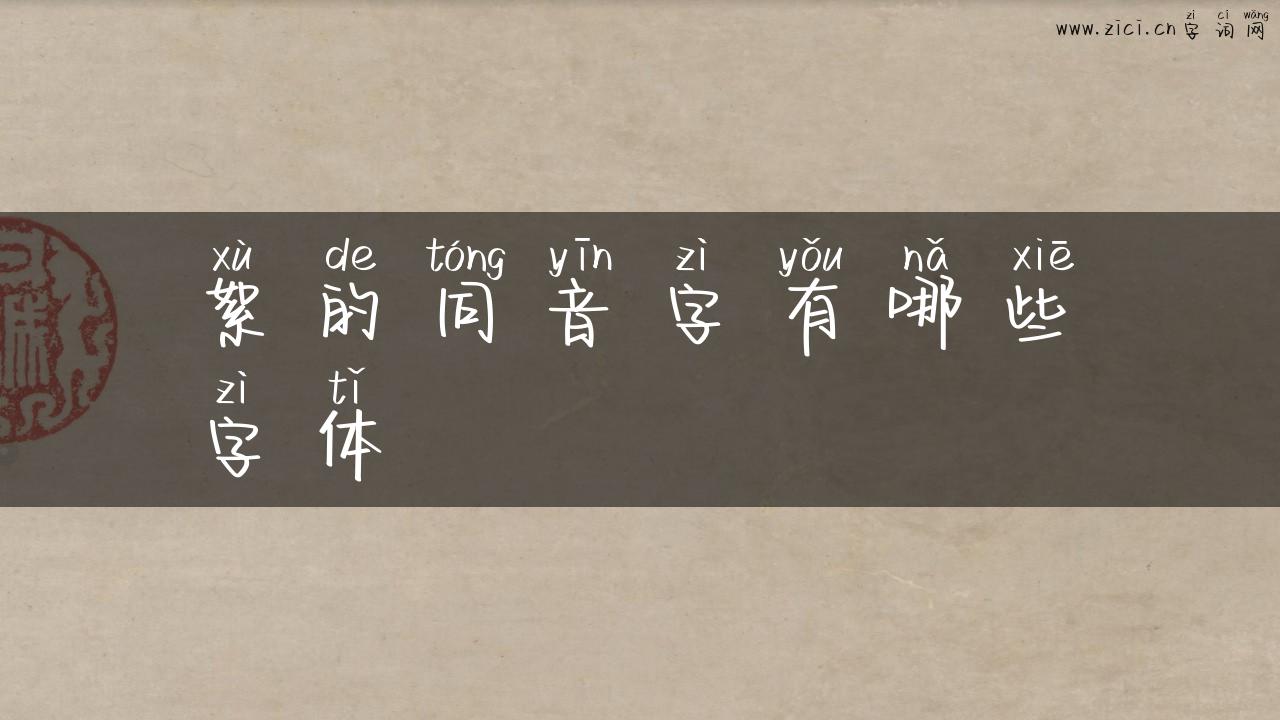 zì cí wǎng
www.zici.cn 字词网
xù de tóng yīn zì yǒu nǎ xiē
絮的同音字有哪些
zì tǐ
字体